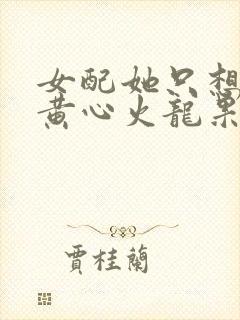 女配她只想
黄心火龍果
賈桂蘭